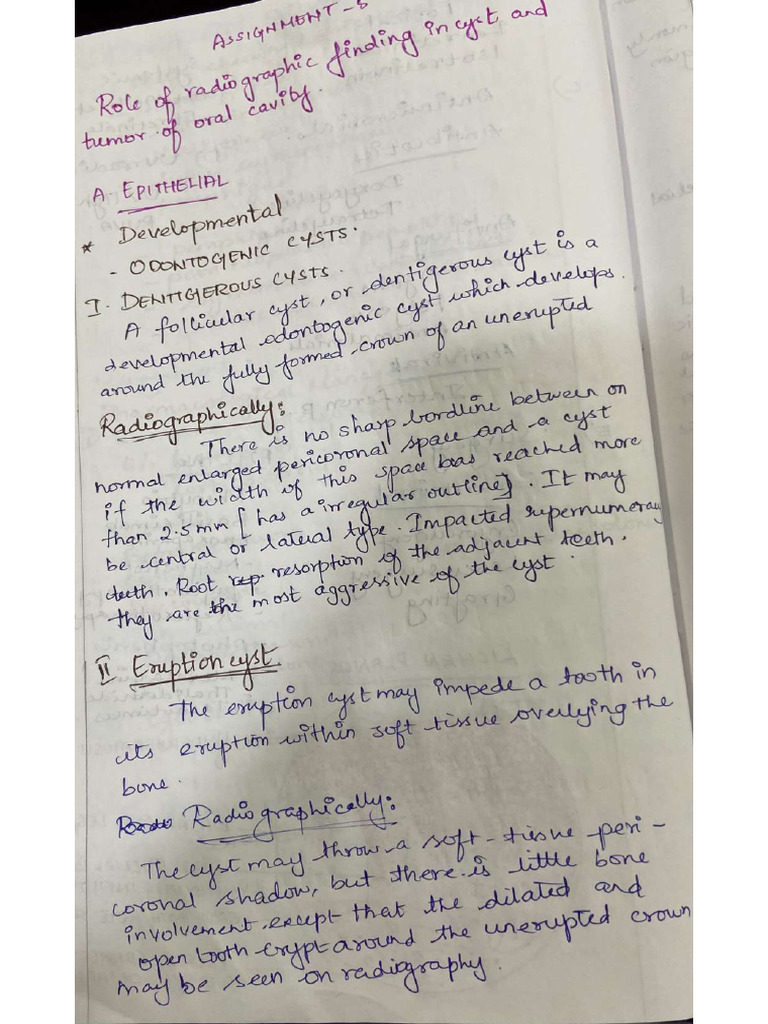 ASSIGNMENT-5
Role of radiographic finding in cyst and
tumor of oral cavity.
A. EPITHELIAL
* Developmental
- ODONTOGENIC CYSTS.
I. DENTIGEROUS CYSTS.
A follicular cyst, or dentigerous cyst is a
developmental odontogenic cyst which develops
around the fully formed crown of an unerupted
Radiographically:
There is no sharp bordline between on
normal enlarged pericoronal space and a cyst
if the width of this space has reached more
than 2.5mm [has a irregular outline]. It may
be central or lateral type. Impacted supernumeray
teeth. Root rep. resorption of the adjacent teeth.
they are the most aggressive of the cyst.
II Eruption cyst.
The eruption cyst may impede a tooth in
its eruption within soft tissue overlying the
bone.
Radiographically:
The cyst may throw a soft-tissue peri-
coronal shadow, but there is little bone
involvement except that the dilated and
open tooth crypt around the unerupted crown
may be seen on radiography.